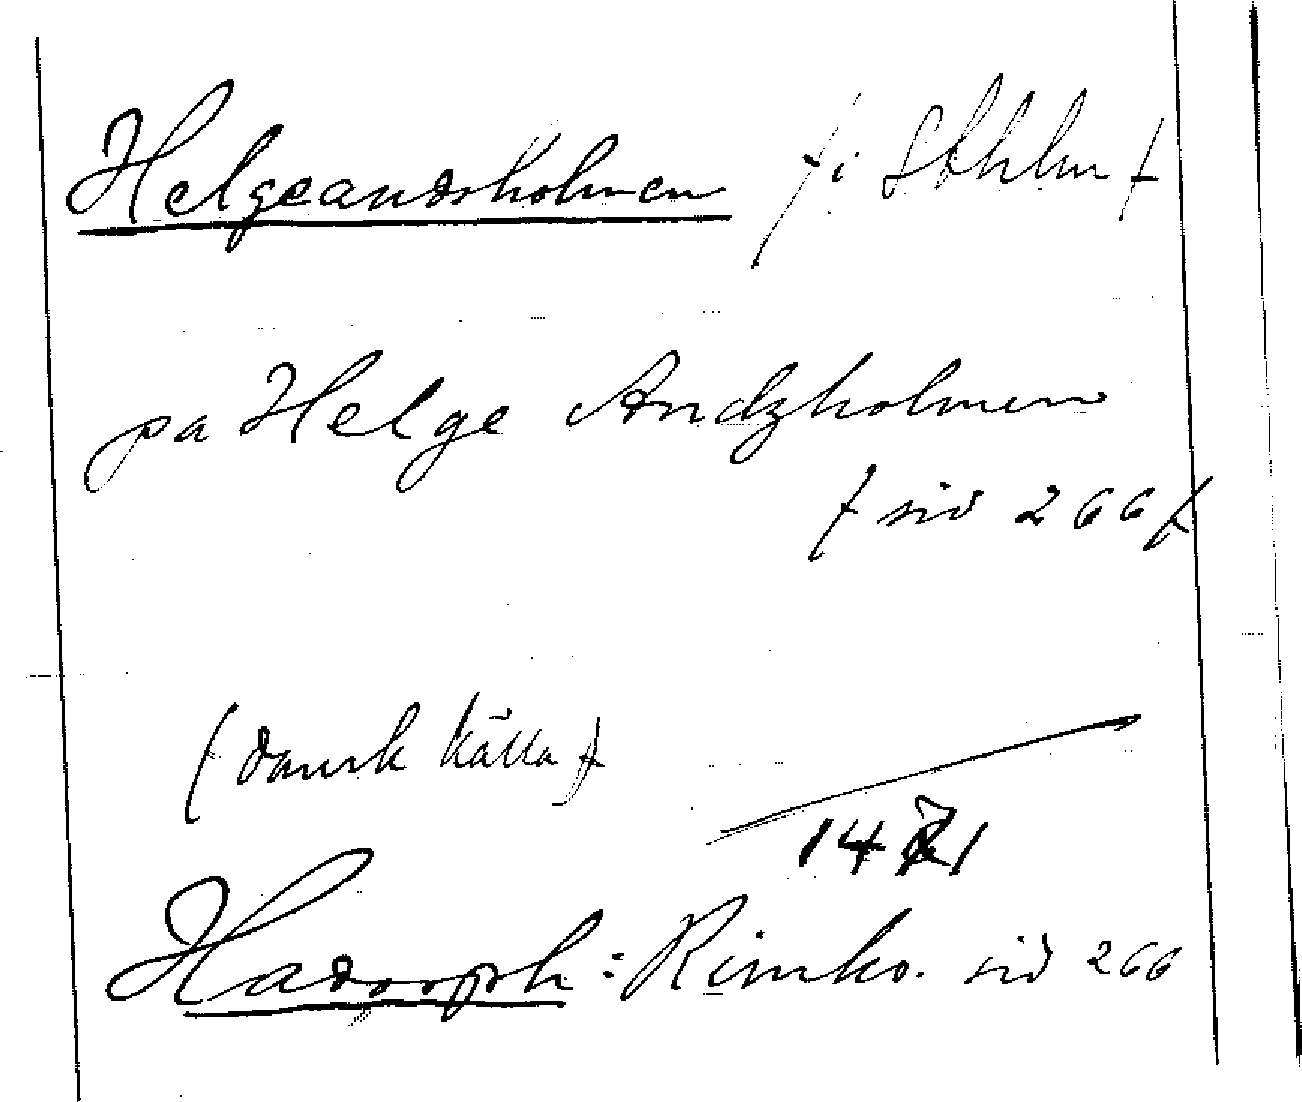 Helgeandsholmen /i Sthlm/
pa Helge Andzholmen
/sid 266/
(dansk källa)
1471
Hadorph: Rimkr. sid 266